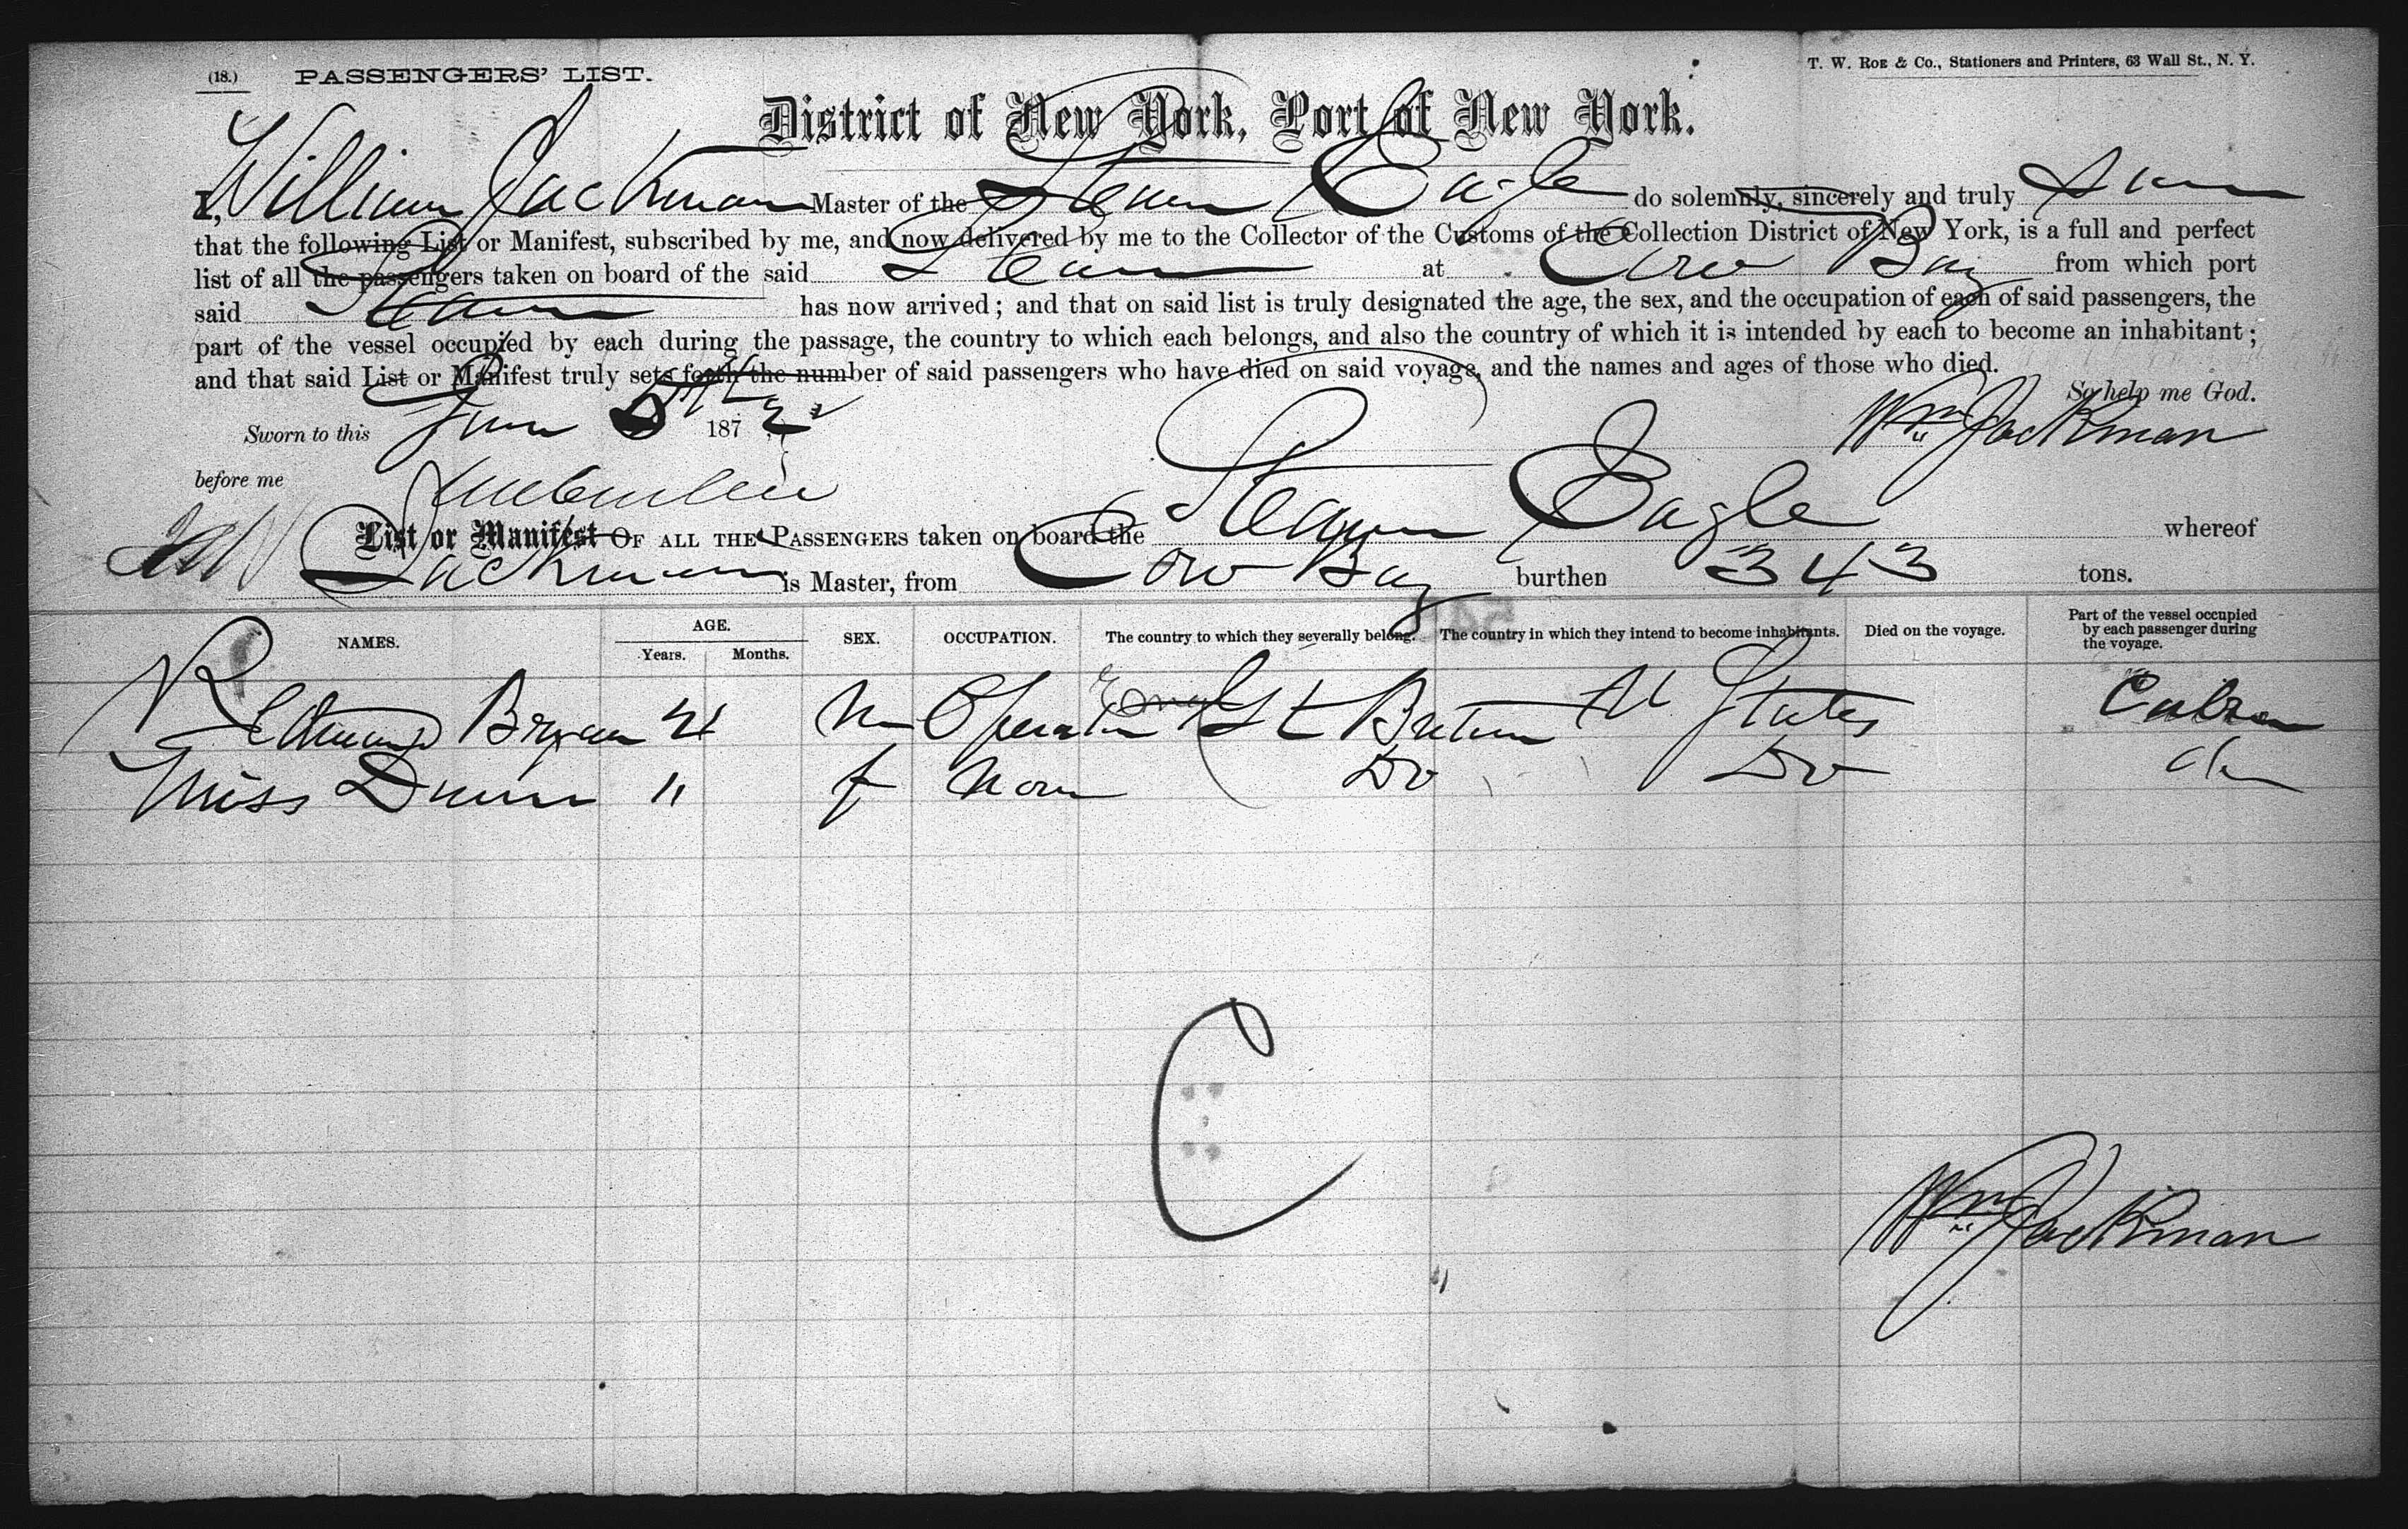 (18.) PASSENGERS' LIST.
T. W. ROE & Co., Stationers and Printers, 63 Wall St., N. Y.
District of New York, Port of New York.
I, William Jackman Master of the Steam Eagle do solemnly, sincerely and truly
that the following List or Manifest, subscribed by me, and now delivered by me to the Collector of the Customs of the Collection District of New York, is a full and perfect
list of all the passengers taken on board of the said Steam at Cow Bay from which port
said Steam has now arrived; and that on said list is truly designated the age, the sex, and the occupation of each of said passengers, the
part of the vessel occupied by each during the passage, the country to which each belongs, and also the country of which it is intended by each to become an inhabitant;
and that said List or Manifest truly sets forth the number of said passengers who have died on said voyage, and the names and ages of those who died.
So help me God.
Sworn to this June 5th 187
Wm Jackman
before me
List or Manifest OF ALL THE PASSENGERS taken on board the Steam Eagle whereof
Jackman is Master, from Cow Bay burthen 343 tons.
NAMES. AGE. Years. Months. SEX. OCCUPATION. The country to which they severally belong. The country in which they intend to become inhabitants. Died on the voyage. Part of the vessel occupied by each passenger during the voyage.
Edmund Bryan 21 M Operator Gt Britain U States Cabin
Miss Dunn 11 f None Do Do do
C
Wm Jackman